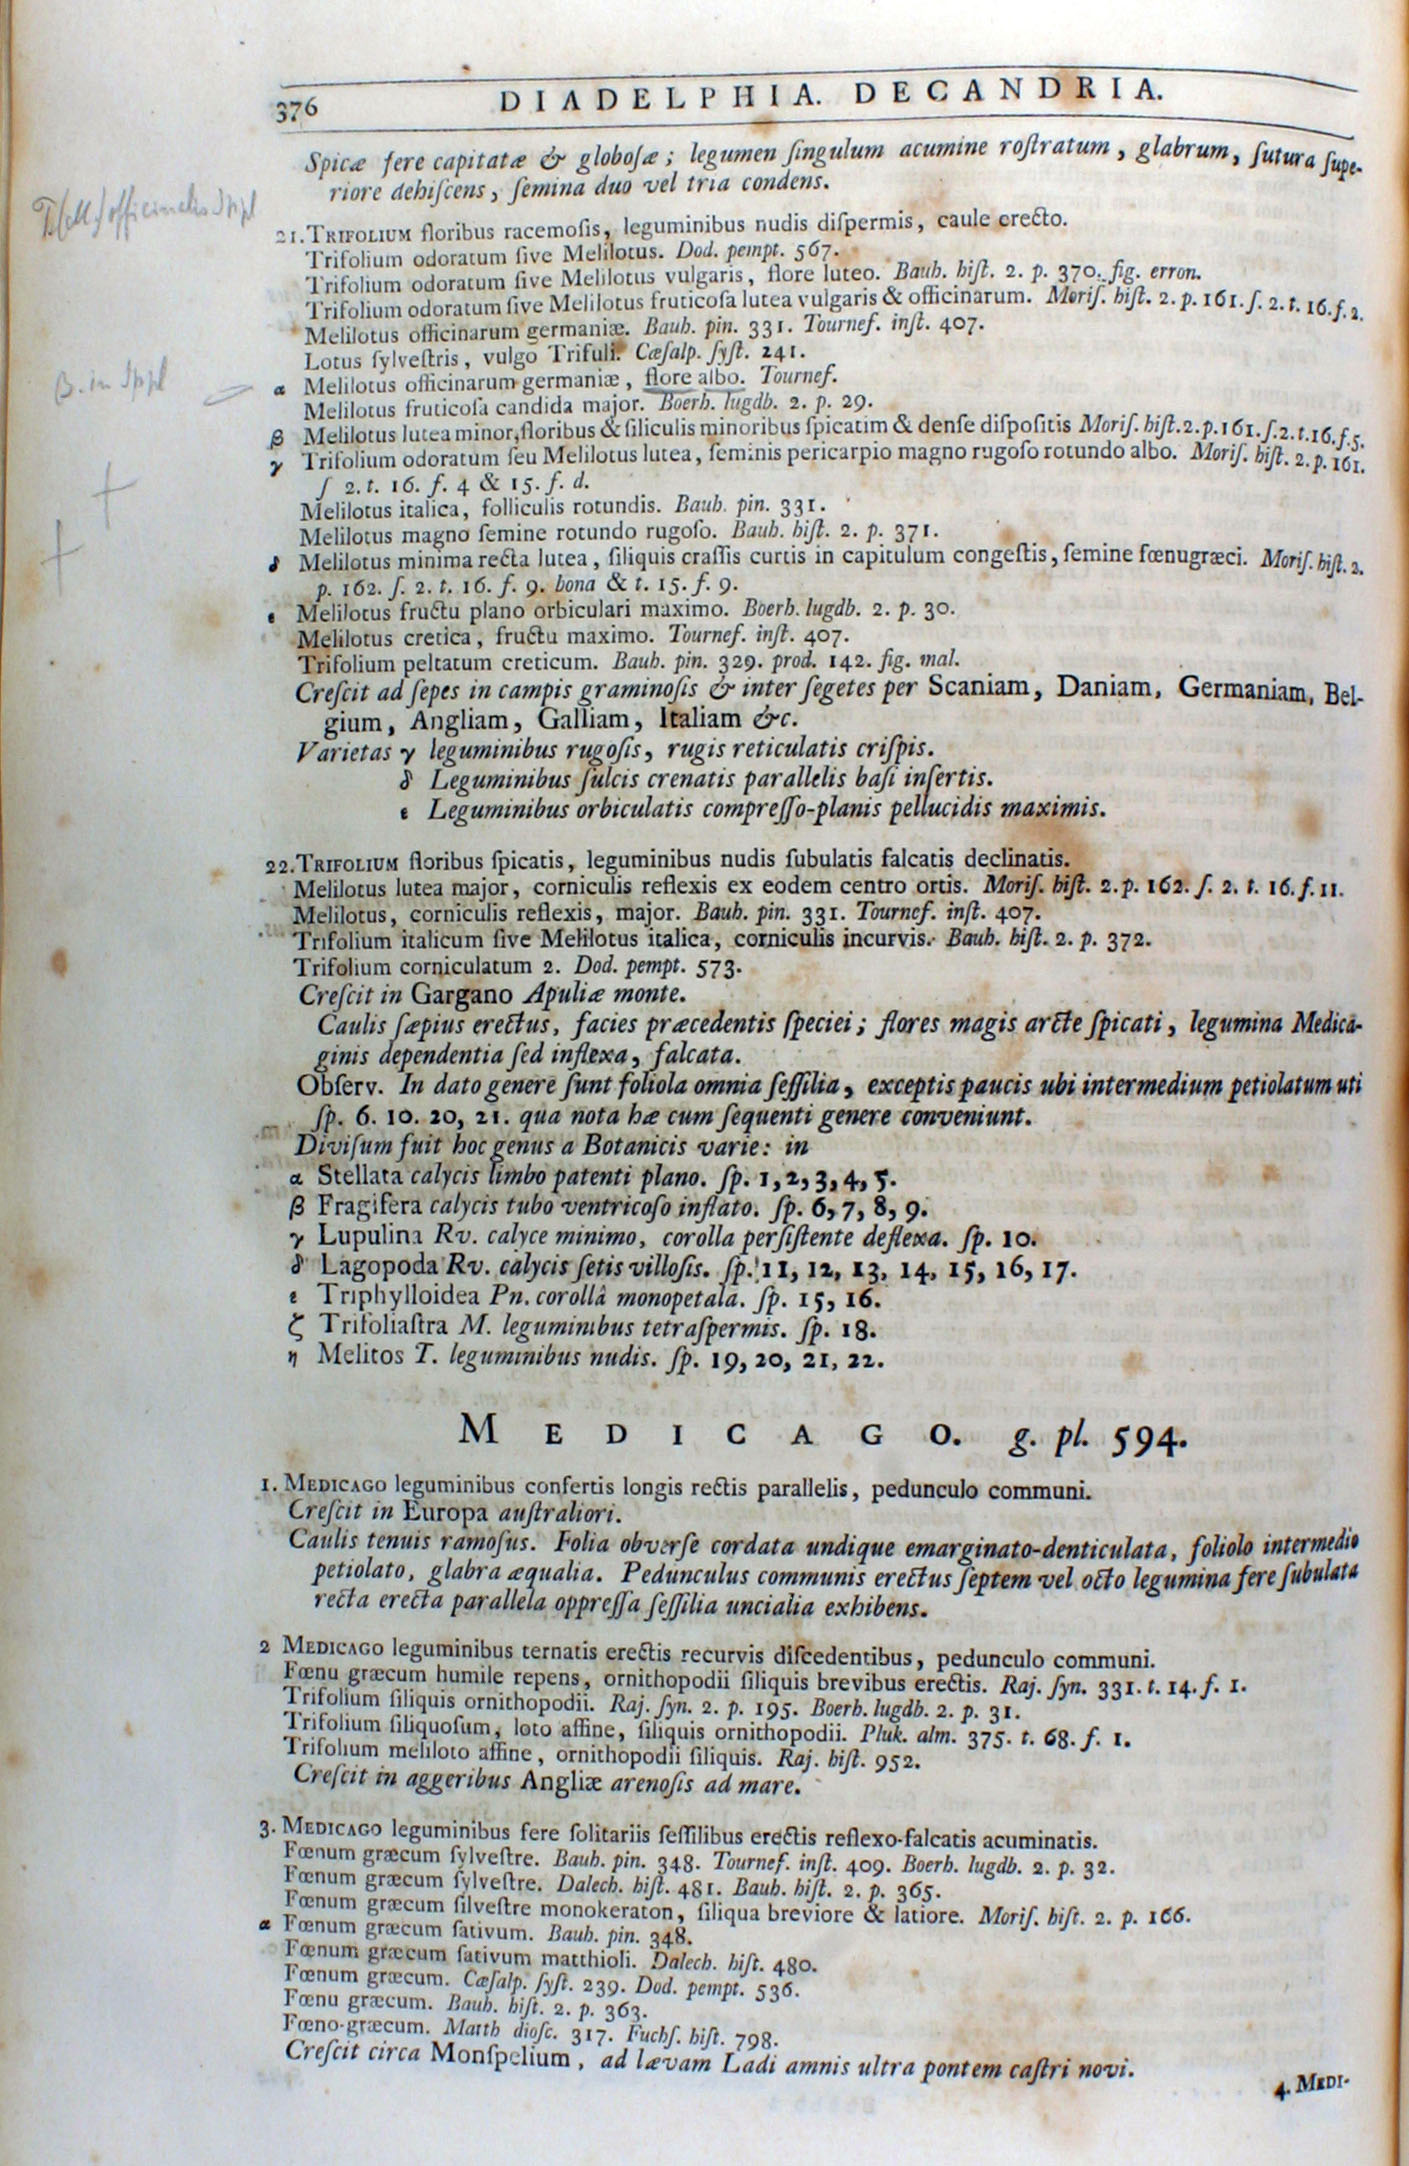 376
DIADELPHIA. DECANDRIA.
Spicæ fere capitatæ & globoſæ; legumen ſingulum acumine roſtratum, glabrum, ſutura ſupe-
riore dehiſcens, ſemina duo vel tria condens.
officinalis
21. TRIFOLIUM floribus racemoſis, leguminibus nudis diſpermis, caule erecto.
Trifolium odoratum ſive Melilotus. Dod. pempt. 567.
Trifolium odoratum ſive Melilotus vulgaris, flore luteo. Bauh. hiſt. 2. p. 370. fig. erron.
Trifolium odoratum ſive Melilotus fruticoſa lutea vulgaris & officinarum. Moriſ. hiſt. 2. p. 161. ſ. 2. t. 16. f. 2.
Melilotus officinarum germaniæ. Bauh. pin. 331. Tournef. inſt. 407.
Lotus ſylveſtris, vulgo Trifuli. Cæſalp. ſyſt. 241.
β. in
α Melilotus officinarum germaniæ, flore albo. Tournef.
Melilotus fruticoſa candida major. Boerh. lugdb. 2. p. 29.
β Melilotus lutea minor, floribus & ſiliculis minoribus ſpicatim & denſe diſpoſitis Moriſ. hiſt. 2. p. 161. ſ. 2. t. 16. f. 5.
γ Trifolium odoratum ſeu Melilotus lutea, ſeminis pericarpio magno rugoſo rotundo albo. Moriſ. hiſt. 2. p. 161.
ſ 2. t. 16. f. 4 & 15. f. d.
Melilotus italica, folliculis rotundis. Bauh. pin. 331.
Melilotus magno ſemine rotundo rugoſo. Bauh. hiſt. 2. p. 371.
δ Melilotus minima recta lutea, ſiliquis craſſis curtis in capitulum congeſtis, ſemine fœnugræci. Moriſ. hiſt. 2.
p. 162. ſ. 2. t. 16. f. 9. bona & t. 15. f. 9.
ε Melilotus fructu plano orbiculari maximo. Boerh. lugdb. 2. p. 30.
Melilotus cretica, fructu maximo. Tournef. inſt. 407.
Trifolium peltatum creticum. Bauh. pin. 329. prod. 142. fig. mal.
Creſcit ad ſepes in campis graminoſis & inter ſegetes per Scaniam, Daniam, Germaniam, Bel-
gium, Angliam, Galliam, Italiam &c.
Varietas γ leguminibus rugoſis, rugis reticulatis criſpis.
δ Leguminibus ſulcis crenatis parallelis baſi inſertis.
ε Leguminibus orbiculatis compreſſo-planis pellucidis maximis.
22. TRIFOLIUM floribus ſpicatis, leguminibus nudis ſubulatis falcatis declinatis.
Melilotus lutea major, corniculis reflexis ex eodem centro ortis. Moriſ. hiſt. 2. p. 162. ſ. 2. t. 16. f. 11.
Melilotus, corniculis reflexis, major. Bauh. pin. 331. Tournef. inſt. 407.
Trifolium italicum ſive Melilotus italica, corniculis incurvis. Bauh. hiſt. 2. p. 372.
Trifolium corniculatum 2. Dod. pempt. 573.
Creſcit in Gargano Apuliæ monte.
Caulis ſæpius erectus, facies præcedentis ſpeciei; flores magis arcte ſpicati, legumina Medica-
ginis dependentia ſed inflexa, falcata.
Obſerv. In dato genere ſunt foliola omnia ſeſſilia, exceptis paucis ubi intermedium petiolatum uti
ſp. 6. 10. 20, 21. qua nota hæ cum ſequenti genere conveniunt.
Diviſum fuit hoc genus a Botanicis varie: in
α Stellata calycis limbo patenti plano. ſp. 1, 2, 3, 4, 5.
β Fragifera calycis tubo ventricoſo inflato. ſp. 6, 7, 8, 9.
γ Lupulina Rv. calyce minimo, corolla perſiſtente deflexa. ſp. 10.
δ Lagopoda Rv. calycis ſetis villoſis. ſp. 11, 12, 13, 14, 15, 16, 17.
ε Triphylloidea Pn. corollâ monopetala. ſp. 15, 16.
ζ Trifoliaſtra M. leguminibus tetraſpermis. ſp. 18.
η Melitos T. leguminibus nudis. ſp. 19, 20, 21, 22.
MEDICAGO. g. pl. 594.
1. MEDICAGO leguminibus confertis longis rectis parallelis, pedunculo communi.
Creſcit in Europa auſtraliori.
Caulis tenuis ramoſus. Folia obverſe cordata undique emarginato-denticulata, foliolo intermedio
petiolato, glabra æqualia. Pedunculus communis erectus ſeptem vel octo legumina fere ſubulata
recta erecta parallela oppreſſa ſeſſilia uncialia exhibens.
2 MEDICAGO leguminibus ternatis erectis recurvis diſcedentibus, pedunculo communi.
Fœnu græcum humile repens, ornithopodii ſiliquis brevibus erectis. Raj. ſyn. 331. t. 14. f. 1.
Trifolium ſiliquis ornithopodii. Raj. ſyn. 2. p. 195. Boerh. lugdb. 2. p. 31.
Trifolium ſiliquoſum, loto affine, ſiliquis ornithopodii. Pluk. alm. 375. t. 68. f. 1.
Trifolium meliloto affine, ornithopodii ſiliquis. Raj. hiſt. 952.
Creſcit in aggeribus Angliæ arenoſis ad mare.
3. MEDICAGO leguminibus fere ſolitariis ſeſſilibus erectis reflexo-falcatis acuminatis.
Fœnum græcum ſylveſtre. Bauh. pin. 348. Tournef. inſt. 409. Boerh. lugdb. 2. p. 32.
Fœnum græcum ſylveſtre. Dalech. hiſt. 481. Bauh. hiſt. 2. p. 365.
Fœnum græcum ſilveſtre monokeraton, ſiliqua breviore & latiore. Moriſ. hiſt. 2. p. 166.
α Fœnum græcum ſativum. Bauh. pin. 348.
Fœnum græcum ſativum matthioli. Dalech. hiſt. 480.
Fœnum græcum. Cæſalp. ſyſt. 239. Dod. pempt. 536.
Fœnu græcum. Bauh. hiſt. 2. p. 363.
Fœno-græcum. Matth dioſc. 317. Fuchſ. hiſt. 798.
Creſcit circa Monſpelium, ad lævam Ladi amnis ultra pontem caſtri novi.
4. MEDI-